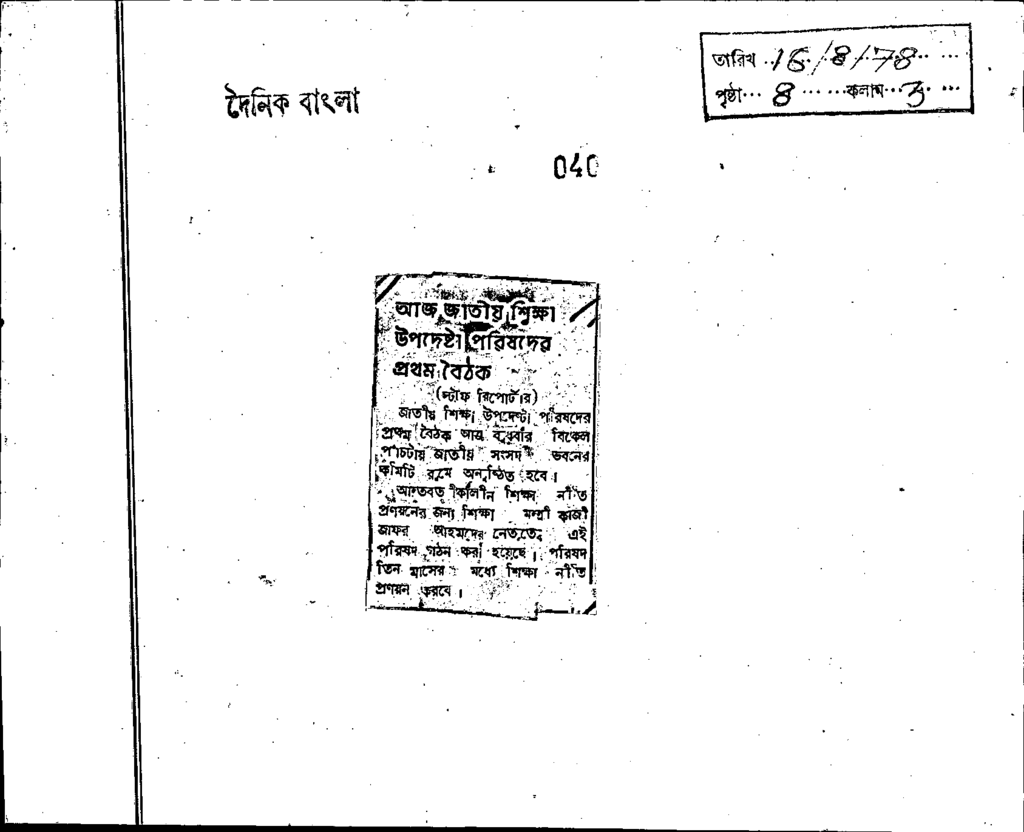 দৈনিক বাংলা
তারিখ ../6./8/78.. ...
পৃষ্ঠা... 8 ... ...কলাম...3. ...
040
আজ জাতীয় শিক্ষা
উপদেষ্টা পরিষদের
প্রথম বৈঠক
(স্টাফ রিপোর্টার)
জাতীয় শিক্ষা উপদেষ্টা পরিষদের
প্রথম বৈঠক আজ বুধবার বিকেল
পাঁচটায় জাতীয় সংসদ ভবনের
কমিটি রুমে অনুষ্ঠিত হবে।
অন্তর্বর্তীকালীন শিক্ষা নীতি
প্রণয়নের জন্য শিক্ষা মন্ত্রী কাজী
জাফর আহমদের নেতৃত্বে এই
পরিষদ গঠন করা হয়েছে। পরিষদ
তিন মাসের মধ্যে শিক্ষা নীতি
প্রণয়ন করবে।